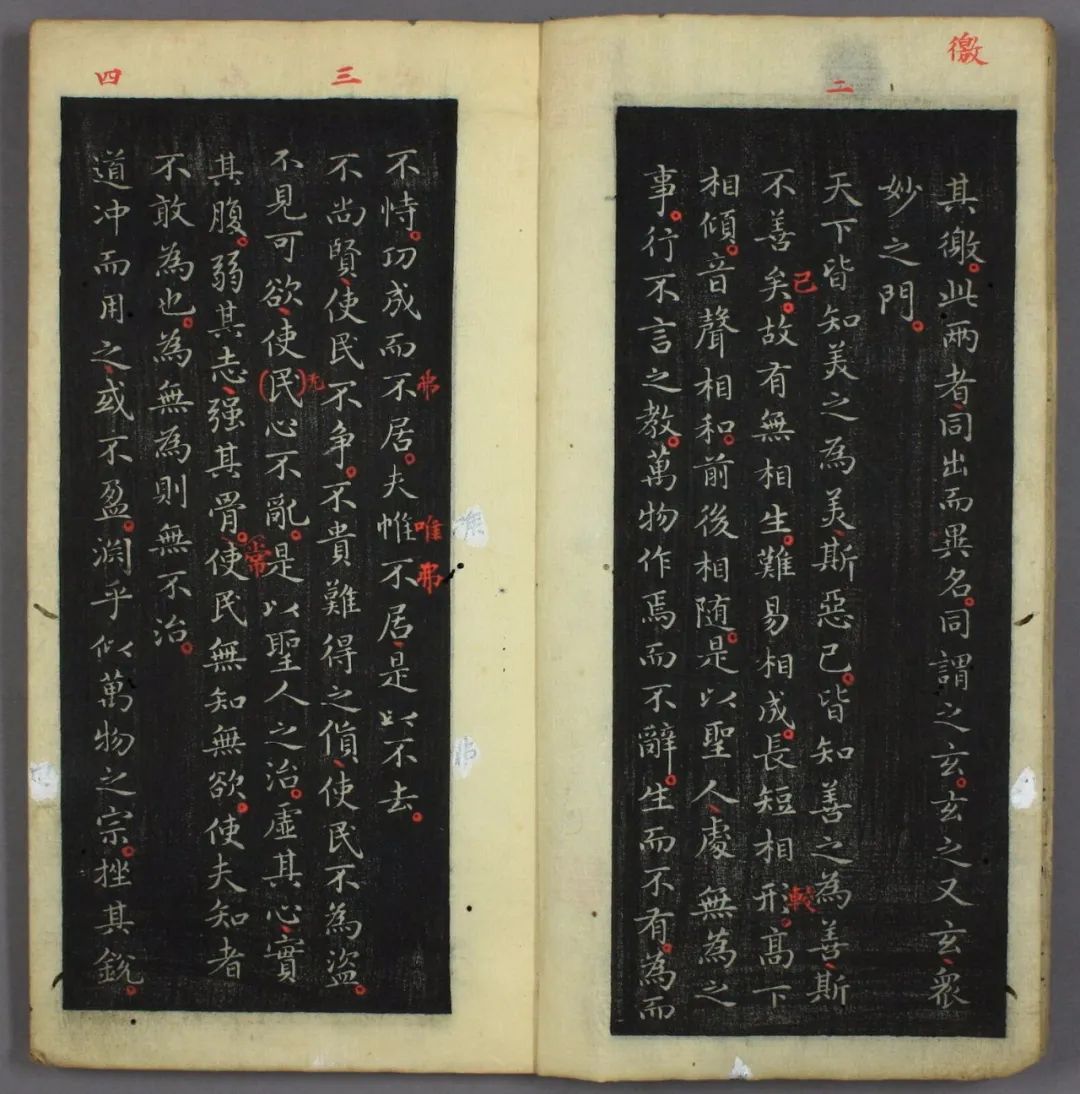 徼
二
其徼。此兩者、同出而異名。同謂之玄。玄之又玄、眾
妙之門。
天下皆知美之為美、斯惡已。皆知善之為善、斯
不善矣。故有無相生。難易相成。長短相形。高下
已
較
相傾。音聲相和。前後相随。是以聖人、處無為之
事。行不言之教。萬物作焉而不辭。生而不有。為而
三
四
不恃。功成而不居。夫惟不居、是以不去。
弗
唯
弗
不尚賢、使民不争。不貴難得之貨、使民不為盜。
不見可欲、使(民)心不亂。是以聖人之治。虛其心、實
无
其腹。弱其志、强其骨。使民無知無欲。使夫知者
常
不敢為也。為無為則無不治。
道冲而用之、或不盈。淵乎似萬物之宗。挫其銳。